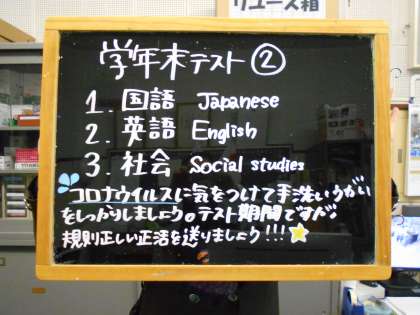 リユース箱
学年末テスト②
1. 国語 Japanese
2. 英語 English
3. 社会 Social studies
コロナウイルスに気をつけて手洗いうがい
をしっかりしましょう。テスト期間です!!
規則正しい正活を送りましょう!!!